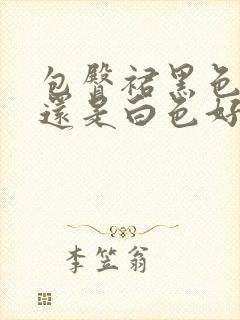 包臀裙黑色
還是白色好
李笠翁